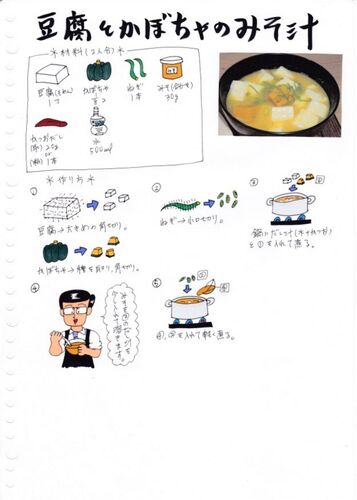 豆腐とかぼちゃのみそ汁
*材料(2人分)*
豆腐(もめん)
1丁
かぼちゃ
ねぎ
1本
みそ(合わせ)
30g
かつおだし
(節)20g
or
(粉)1本
水
500ml
*作り方*
①
豆腐→大きめの角切り。
かぼちゃ→種を取り、角切り。
②
ねぎ→小口切り。
③
鍋にだし汁(水+かつお)
と①を入れて煮る。
④
みそを③のだし汁を
少し入れて溶きます。
⑤
④,②を入れて軽く煮る。